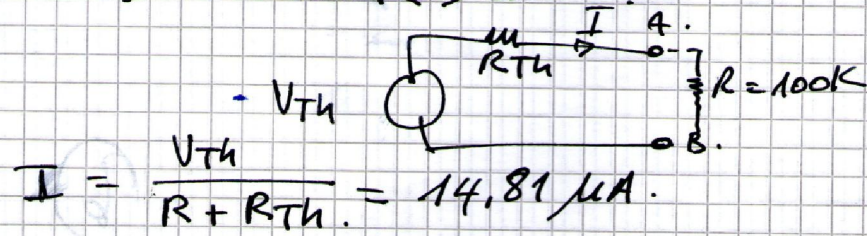 I A.
RTh
R = 100K
VTh
B.
I = VTh / R + RTh. = 14,81 μA.